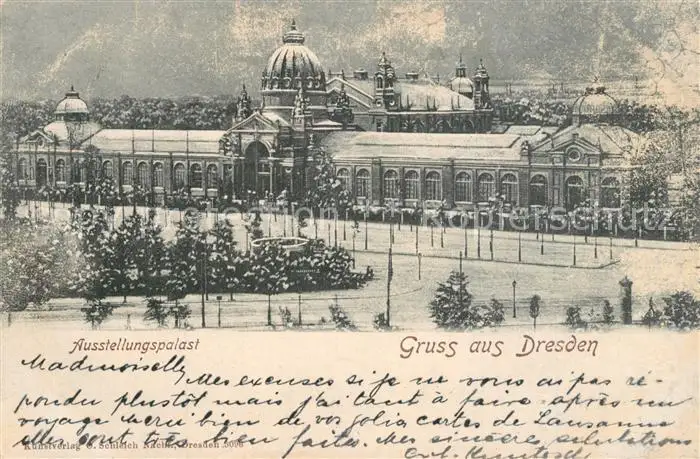 Ausstellungspalast
Gruss aus Dresden
Mademoiselle
Mes excuses si je ne vous ai pas ré-
pondu plustôt mais j'ai tant à faire après un
voyage Merci bien de vos jolia cartes de Lausanne
elles sont très bien faites. Mes sincères salutations
Kunstverlag C. Schleich Nachf., Dresden
oldthing